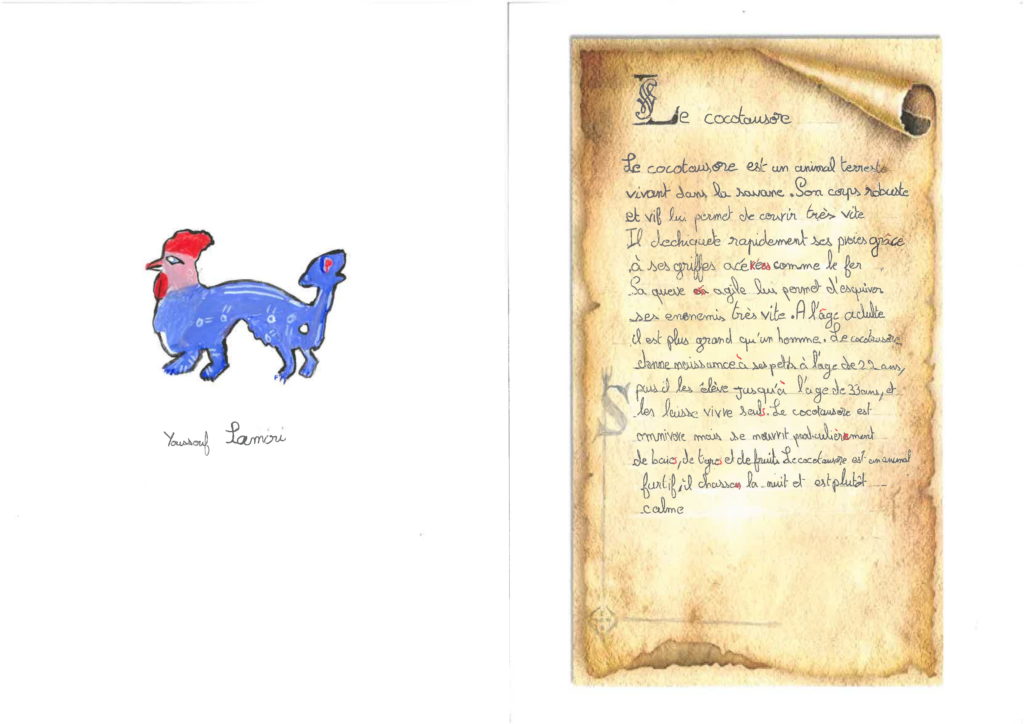 Youssouf Lamiri
Le cocotausore
Le cocotausore est un animal terrestre
vivant dans la savane. Son corps robuste
et vif lui permet de courir très vite
Il dechiquete rapidement ses proies grâce
à ses griffes acérées comme le fer
Sa queue agile lui permet d'esquiver
ses ennemis très vite. A l'âge adulte
il est plus grand qu'un homme. Le cocotausore
donne naissance à ses petits à l'age de 22 ans,
puis il les élève jusqu'à l'age de 33 ans, et
les laisse vivre seuls. Le cocotausore est
omnivore mais se nourrit particulièrement
de baies, de tigres et de fruits. Le cocotausore est un animal
furtif, il chasse la nuit et est plutôt
calme